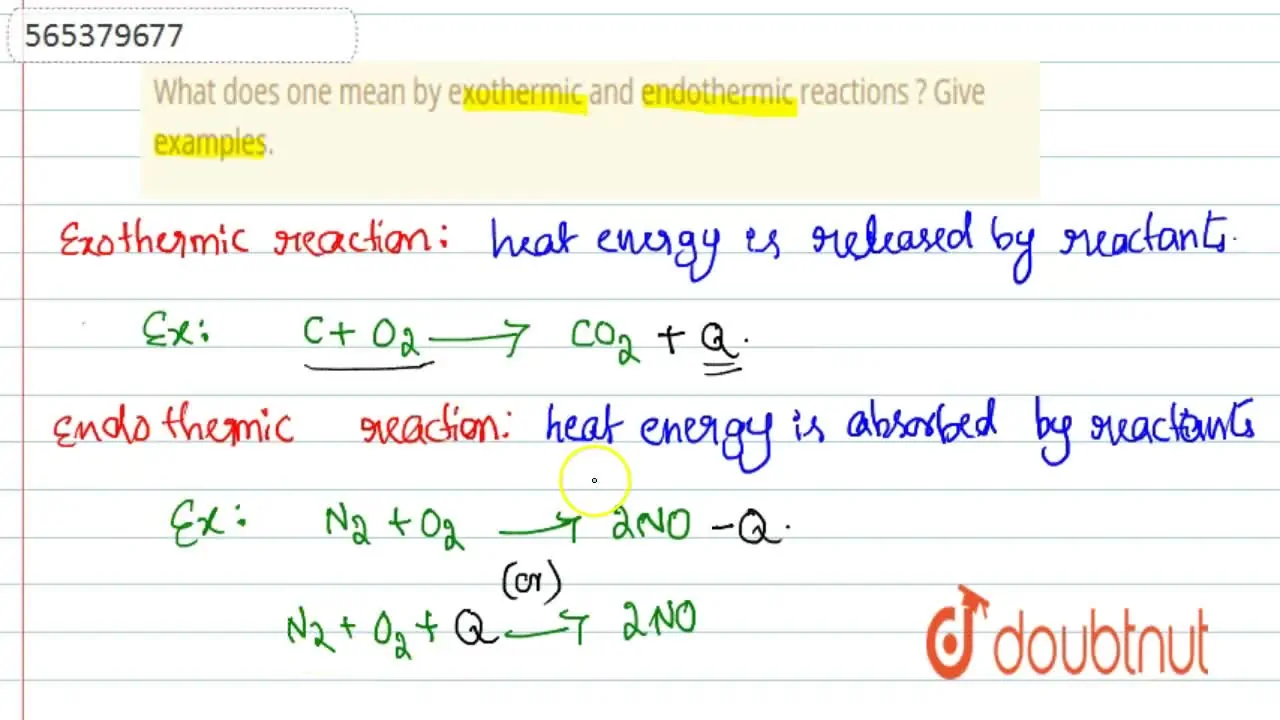 565379677
What does one mean by exothermic and endothermic reactions ? Give
examples.
Exothermic reaction: heat energy is released by reactants.
Ex: C + O2 → CO2 + Q.
Endothermic reaction: heat energy is absorbed by reactants
Ex: N2 + O2 → 2NO - Q.
(or)
N2 + O2 + Q → 2NO
doubtnut